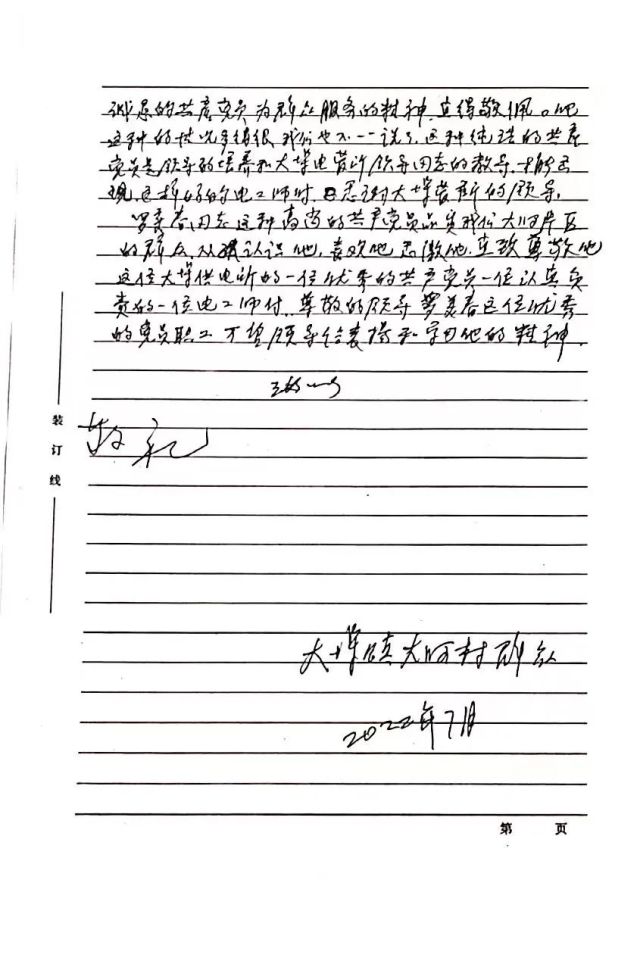 的共产党员为群众服务的精神,真得敬佩。他
这种的情况多得很,我们也不一一说了,这种纯洁的共产
党员是领导的培养和大埠电管所领导同志的教导,才能出
现这样好的电工师付,感谢大埠管所的领导。
罗美春同志这种高尚的共产党员品质我们大河片区
的群众从认识他,喜欢他,感激他,直致尊敬他
这位大埠供电所的一位优秀的共产党员一位认真负
责的一位电工师付,尊敬的领导罗美春这位优秀
的党员职工,万望领导给表扬和学习他的精神。
致以
敬礼
大埠镇大河村群众
2022年7月
装订线
第 页